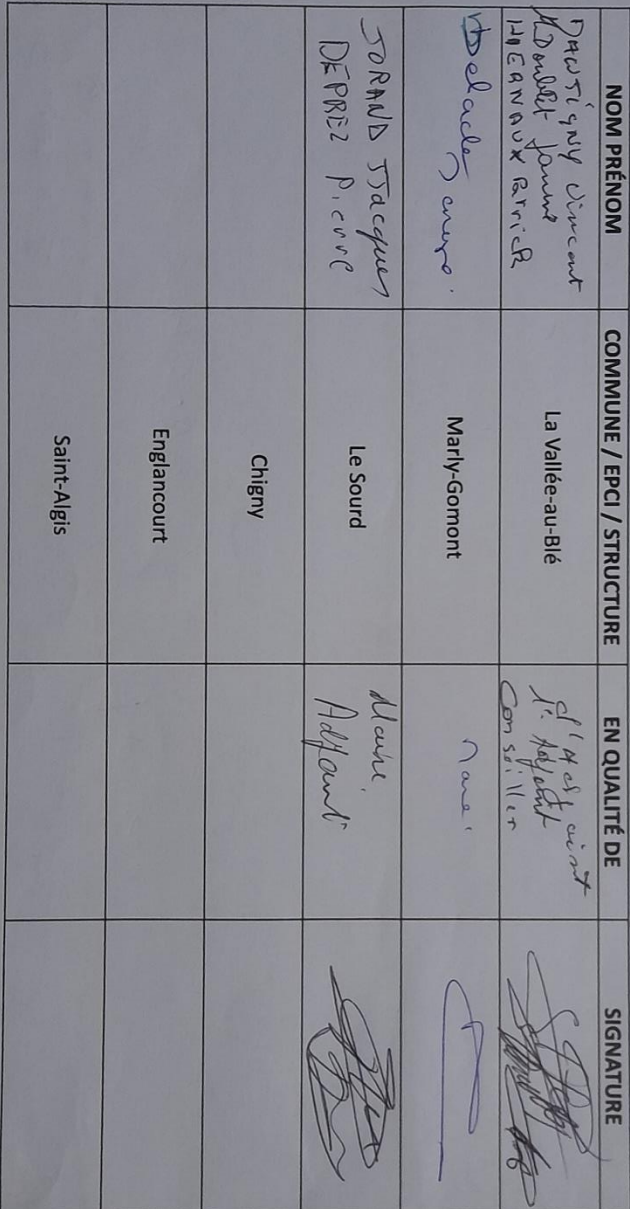 NOM PRÉNOM
COMMUNE / EPCI / STRUCTURE
EN QUALITÉ DE
SIGNATURE
DANTIGNY Vincent
Doublet
HIERNAUX Patrick
La Vallée-au-Blé
Adjoint
Conseiller
Marly-Gomont
JORAND JJacques
DEPREZ Pierre
Le Sourd
Maire
Adjoint
Chigny
Englancourt
Saint-Algis